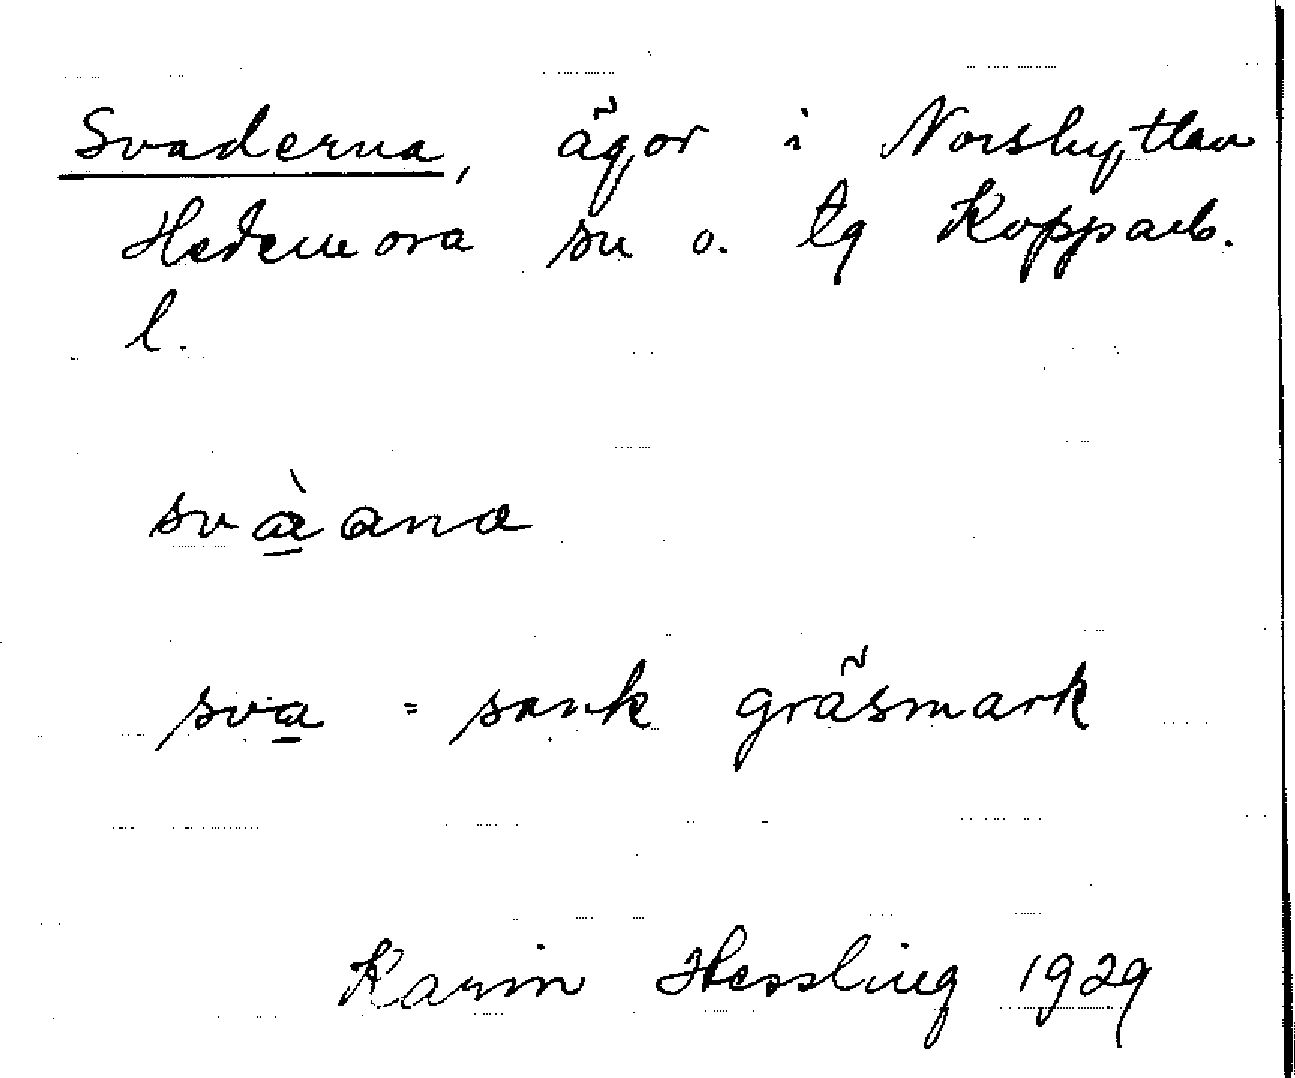 Svaderna, ägor i Norshyttan
Hedemora sn o. tg Kopparb.
l.
svàana
sva = sank gräsmark
Karin Hessling 1929